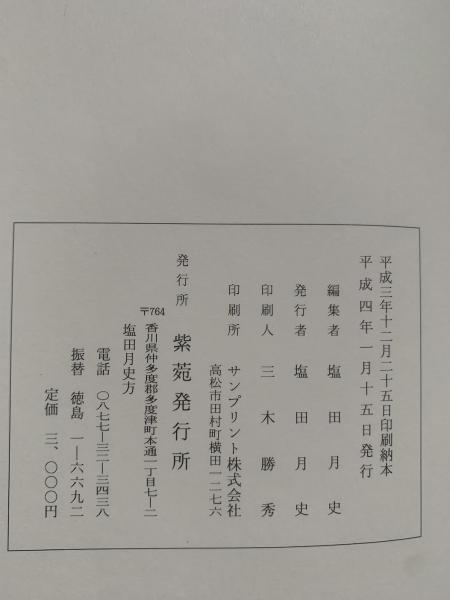 平成三年十二月二十五日印刷納本
平成四年一月十五日発行
編集者 塩田月史
発行者 塩田月史
印刷人 三木勝秀
印刷所 サンプリント株式会社
高松市田村町横田一二七六
発行所 紫菀発行所
〒764 香川県仲多度郡多度津町本通一丁目七―二
塩田月史方
電話 〇八七七―三二―三四三八
振替 徳島 一―六六九二
定価 三、〇〇〇円